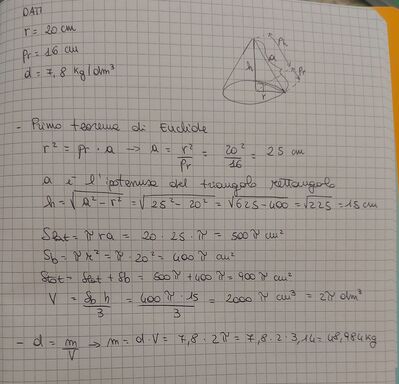 DATI
r = 20 cm
pr = 16 cm
d = 7,8 kg/dm³
ph
a
h
pr
r
- Primo teorema di Euclide
r² = pr · a → a = r²/pr = 20²/16 = 25 cm
a è l'ipotenusa del triangolo rettangolo
h = √a² - r² = √25² - 20² = √625 - 400 = √225 = 15 cm
Slat = π r a = 20 · 25 · π = 500π cm²
Sb = π r² = π · 20² = 400π cm²
Stot = Slat + Sb = 500π + 400π = 900π cm²
V = Sb h/3 = 400π · 15/3 = 2000π cm³ = 2π dm³
- d = m/V → m = d · V = 7,8 · 2π = 7,8 · 2 · 3,14 = 48,984 kg